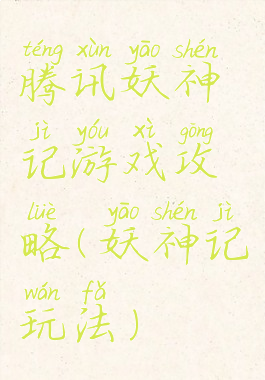 téng xùn yāo shén
腾讯妖神
jì yóu xì gōng
记游戏攻
lüè yāo shén jì
略(妖神记
wán fǎ
玩法)